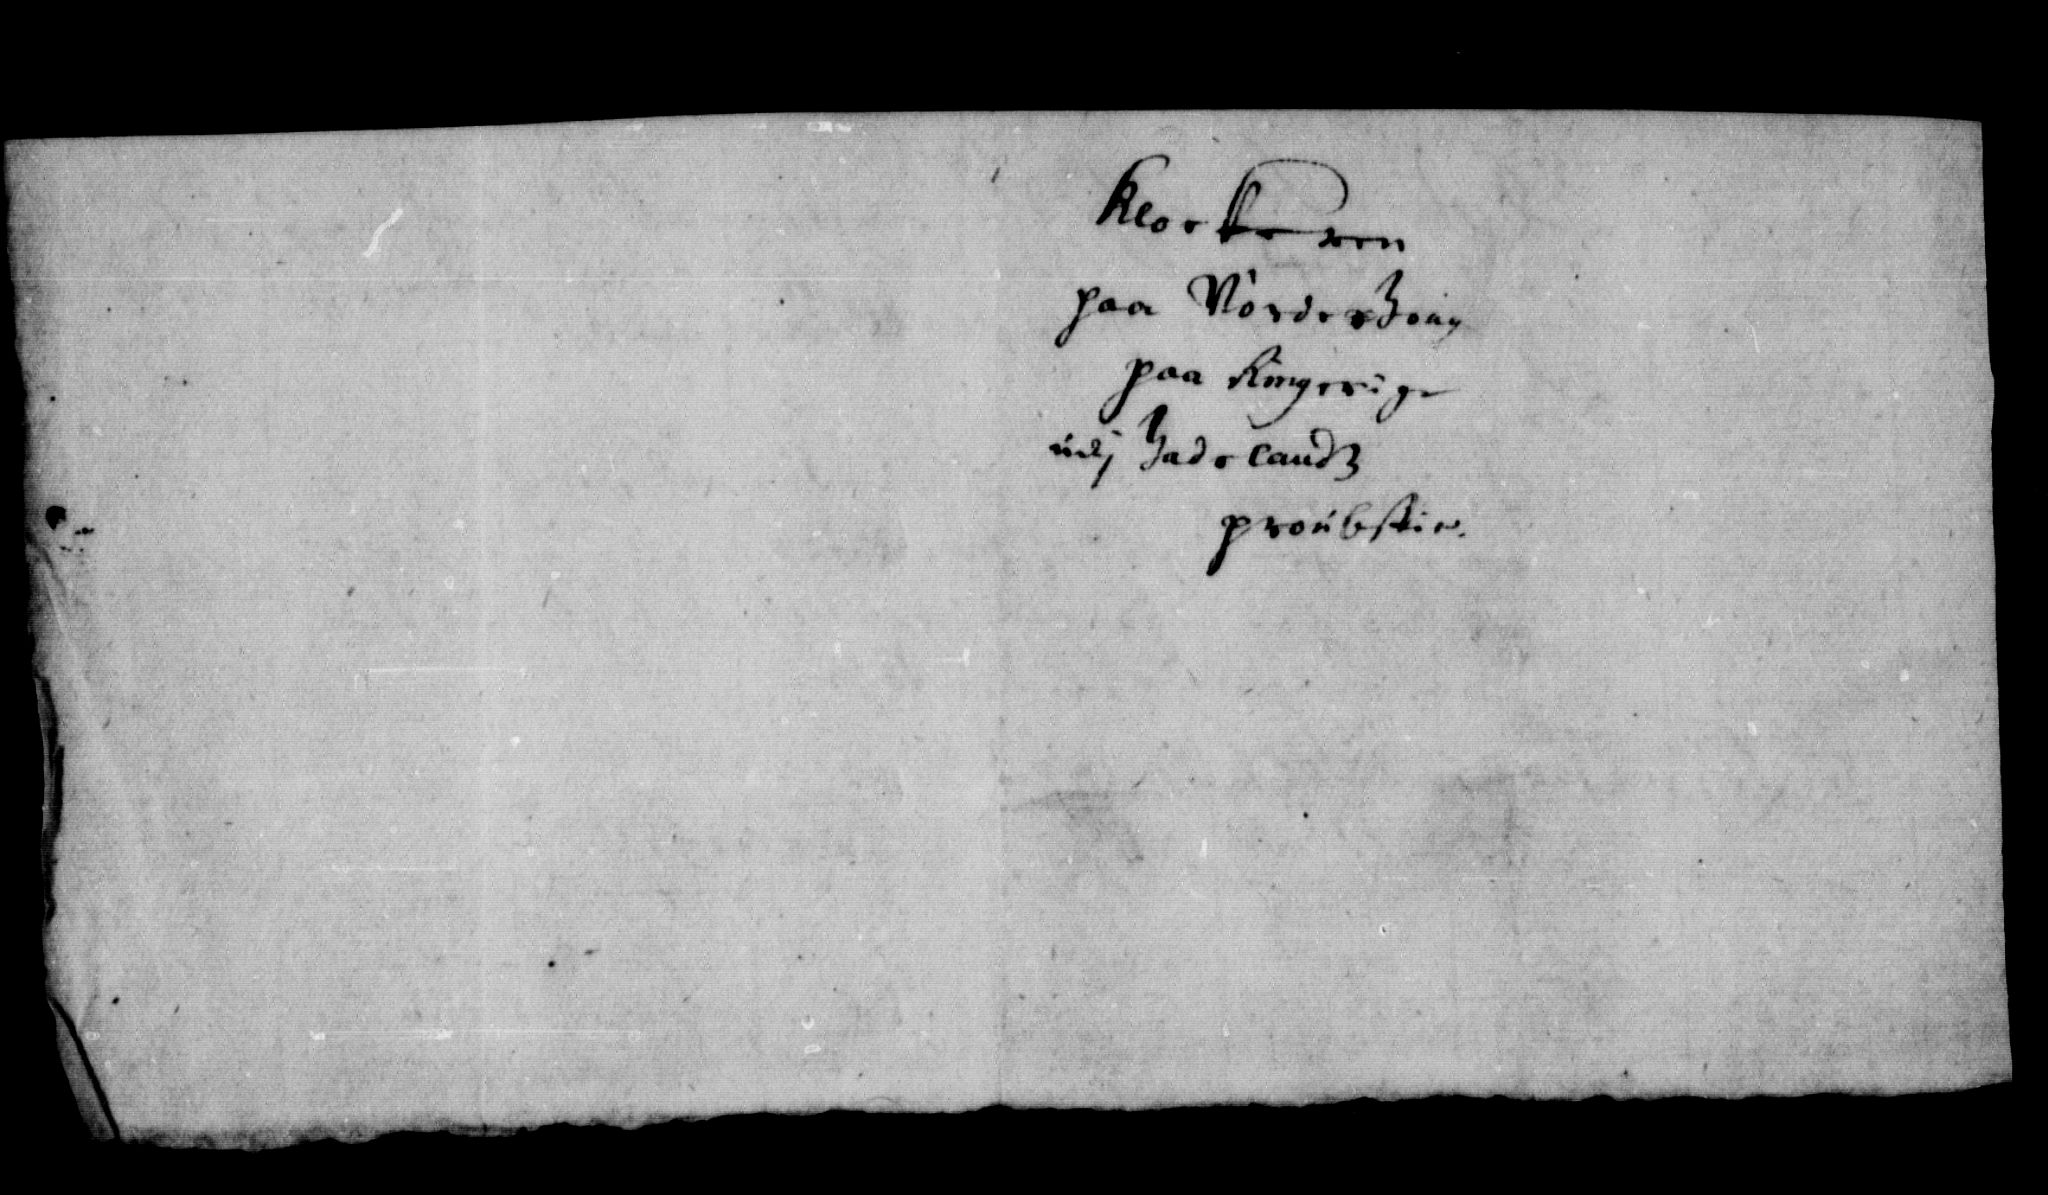 Klockeren
paa Nórderhoug
paa Ringerige
udj Hadelandz
proúbstie.